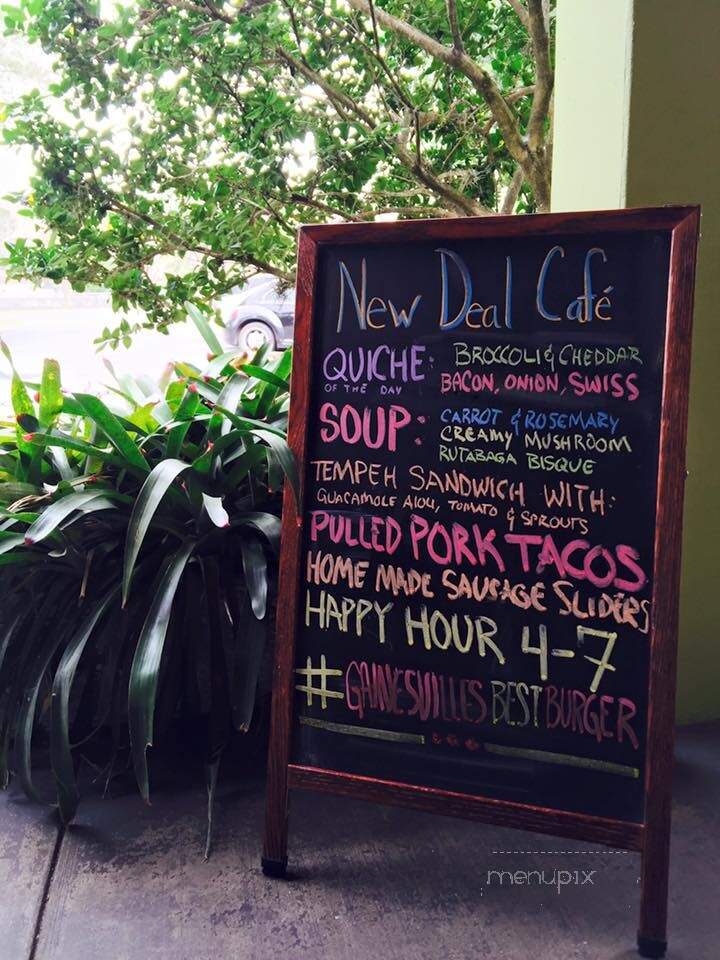 New Deal Café
QUICHE: BROCCOLI & CHEDDAR
OF THE DAY BACON, ONION, SWISS
SOUP: CARROT & ROSEMARY
CREAMY MUSHROOM
RUTABAGA BISQUE
TEMPEH SANDWICH WITH:
GUACAMOLE AIOLI, TOMATO & SPROUTS
PULLED PORK TACOS
HOME MADE SAUSAGE SLIDERS
HAPPY HOUR 4-7
#GAINESVILLESBESTBURGER
menupix